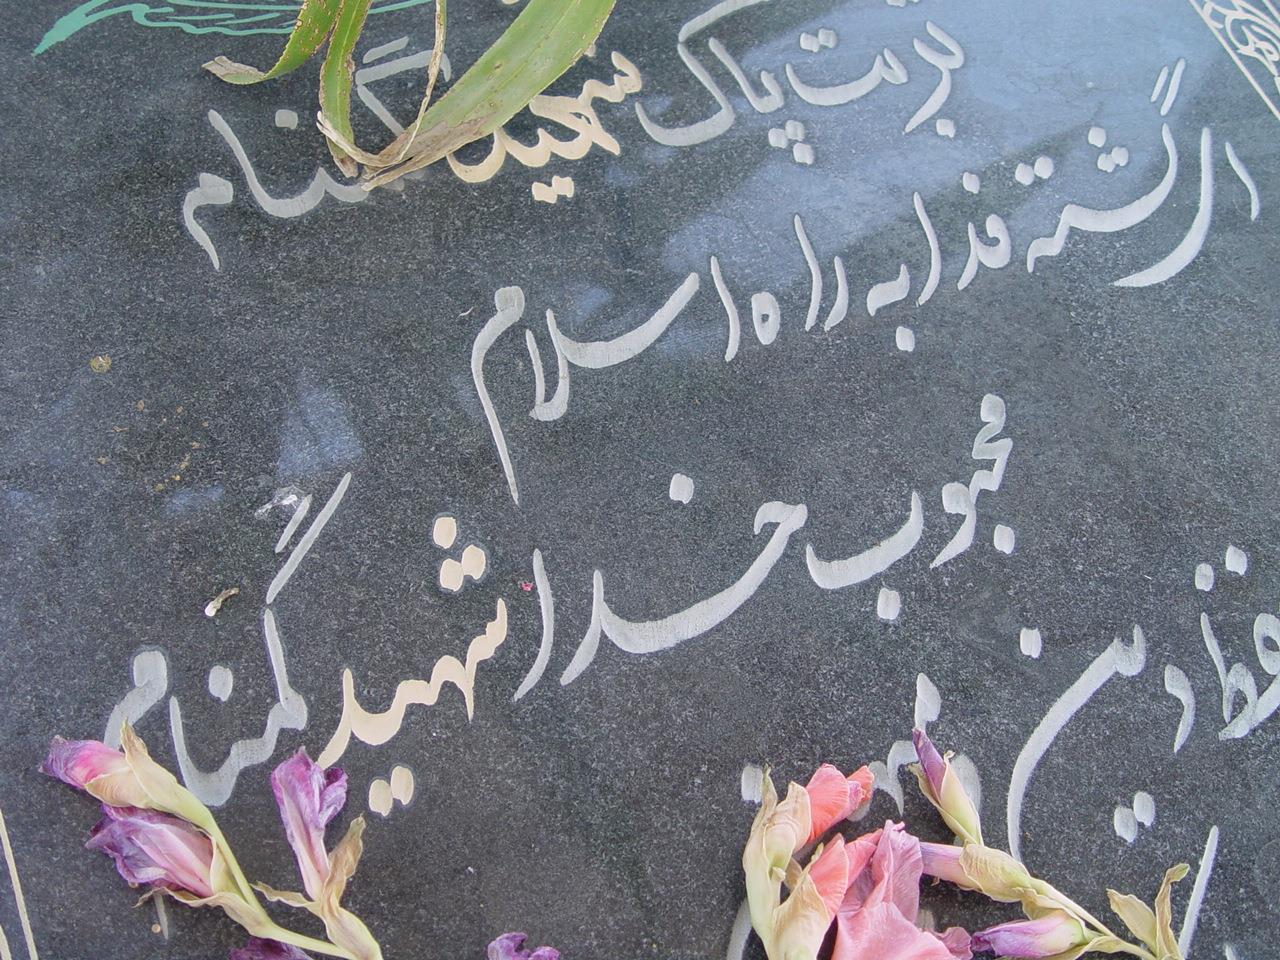 تربت پاک شهید گمنام
ا گشته فدا به راه اسلام
محبوب خدا شهید گمنام
دین